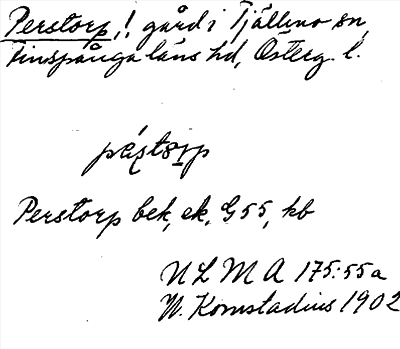 Perstorp, ! gård i Tjällmo sn,
Finspånga läns hd, Österg. l.
Perstorp bek, ek. G 55, kb
ULMA 175:55a
W. Komstadius 1902